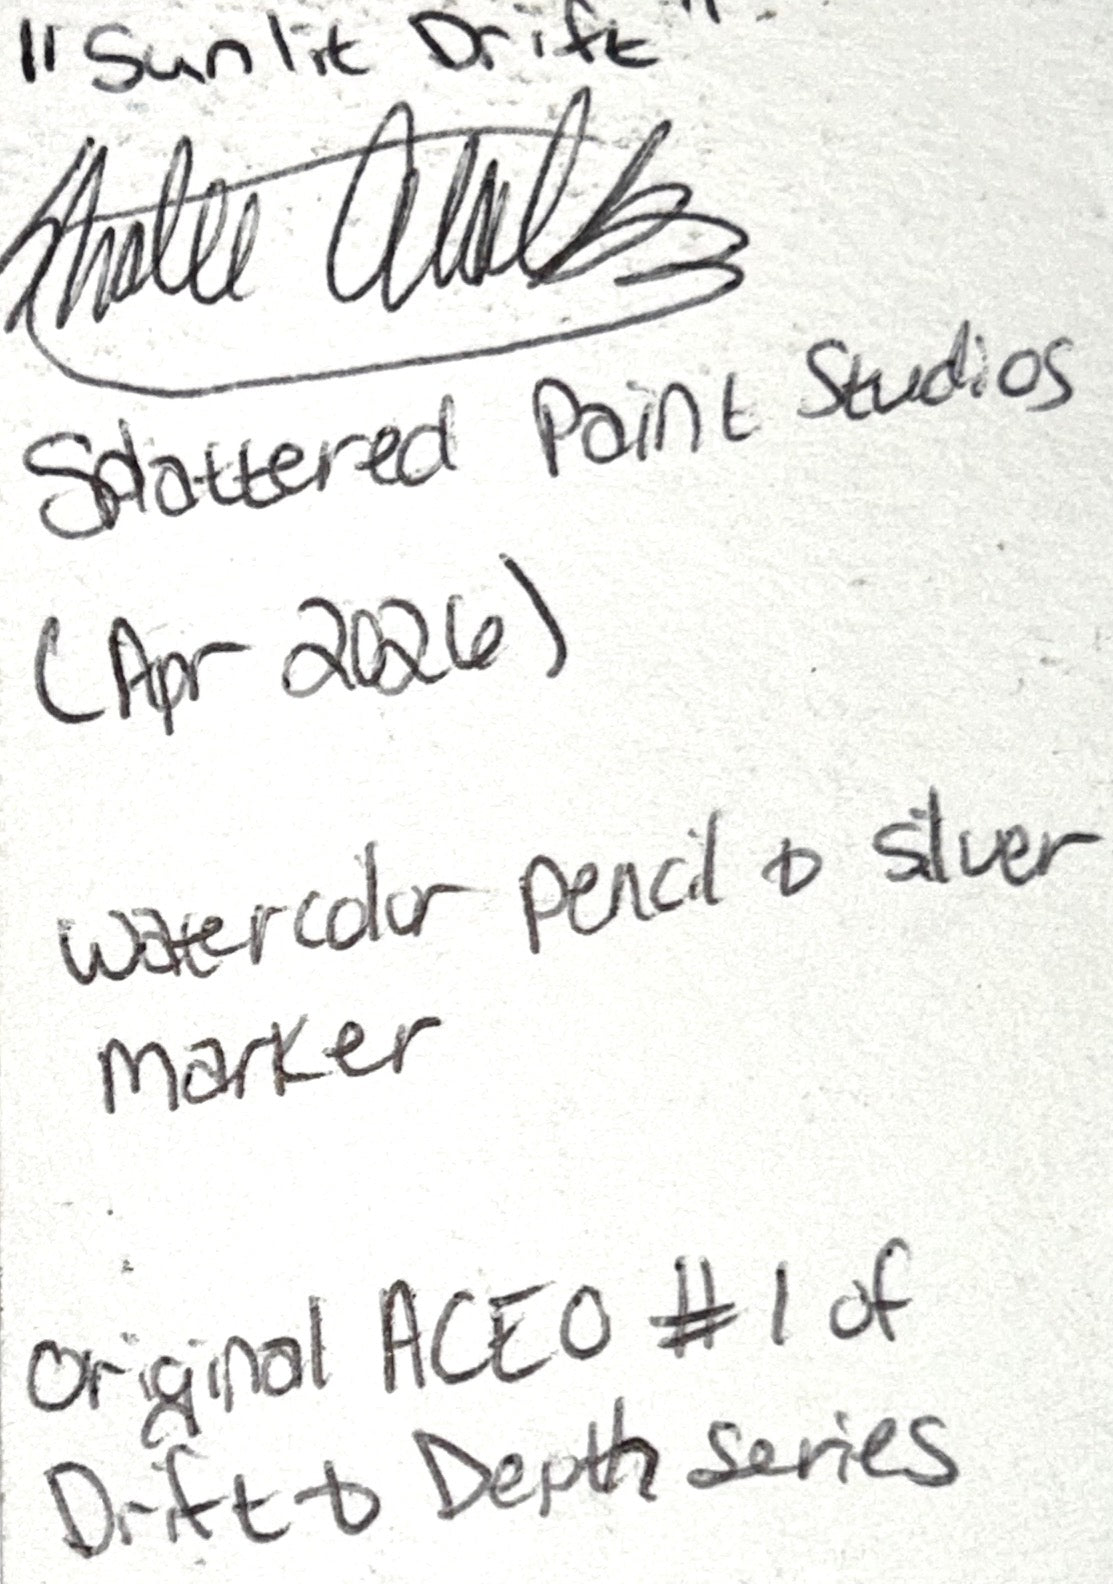 "Sunlit Drift"
Splattered Paint Studios
(Apr 2026)
watercolor pencil & silver
marker
Original ACEO #1 of
Drift & Depth series